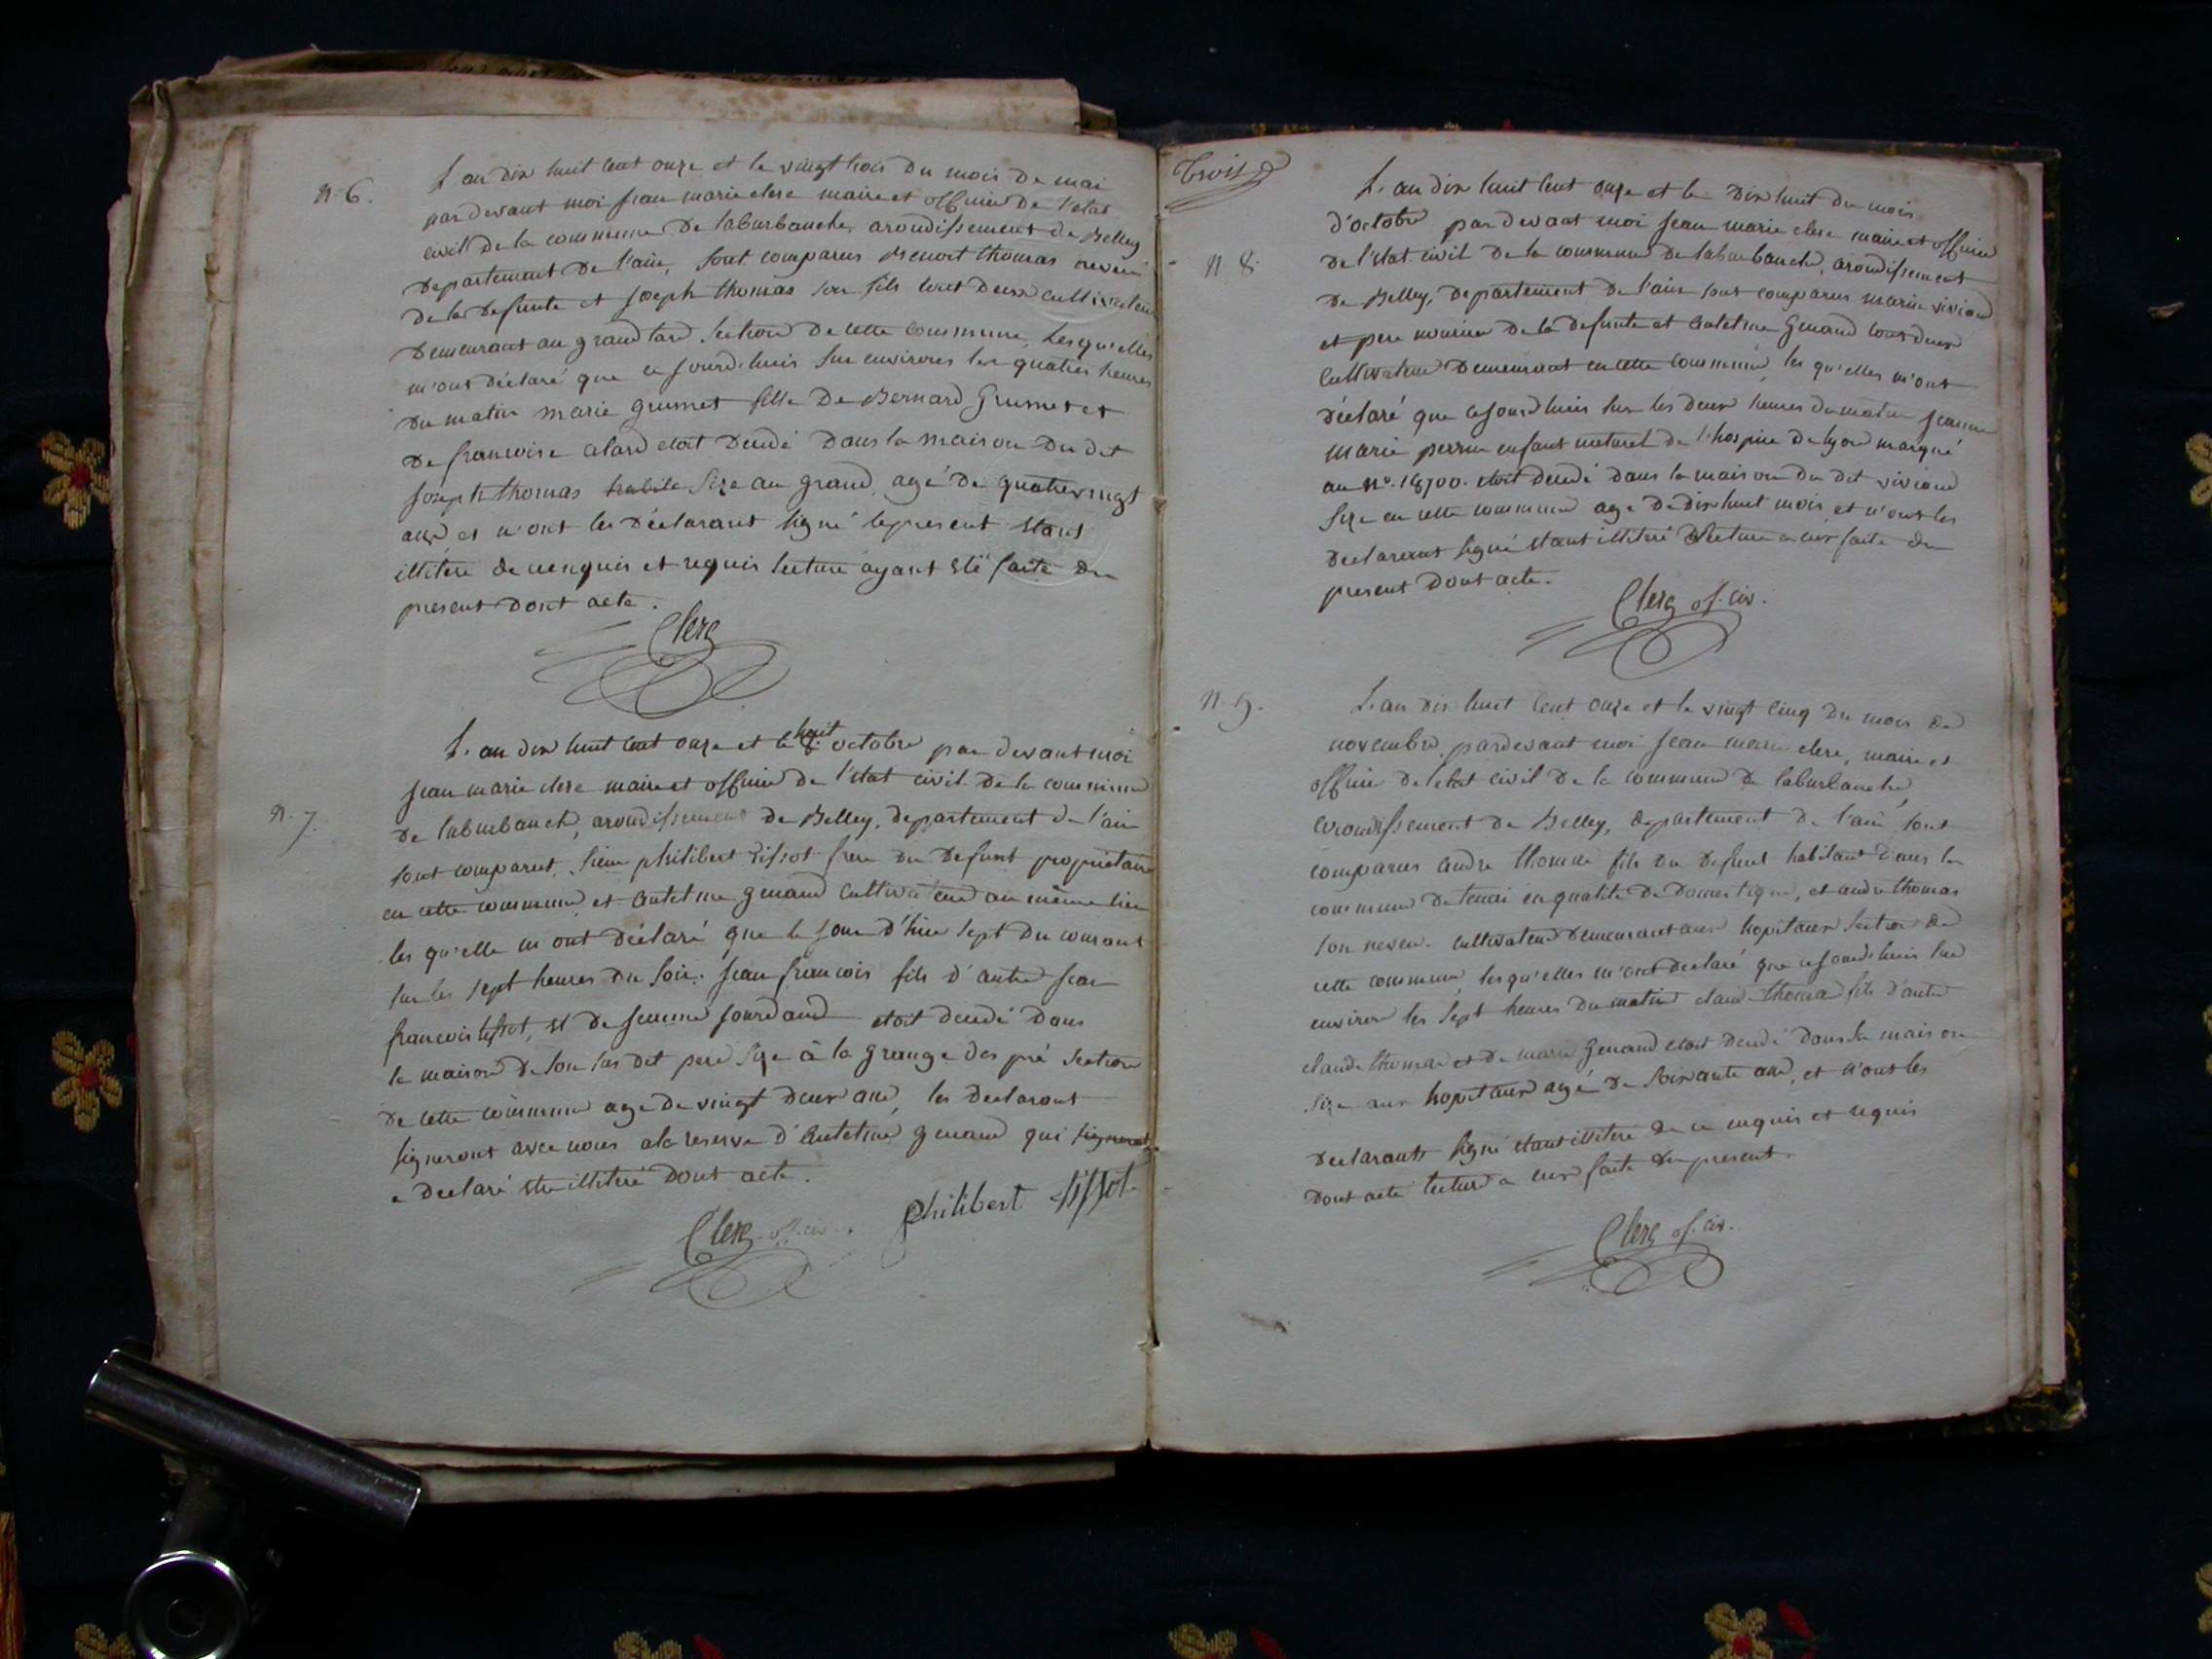 n. 6.
L'an dix huit cent onze et le vingt trois du mois de mai
par devant moi jean marie clerc maire et officier de l'etat
civil de la commune de laburbanche, arondissement de Belley
departement de l'ain, sont comparus Benoit thomas neveu
de la defunte et joseph thomas son fils tout deux cultivateur
demeurant au grand section de cette commune, les qu'elles
m'ont déclaré que ce jourd'huis sur environs les quatres heures
du matin marie grumet fille de Bernard Grumet et
de francoise alard etoit decedé dans la maison du dit
joseph thomas size au grand, agé de quatrevingt
ans et n'ont les déclarant signé le present etant
illiteré de enquis et requis lecture ayant eté faite du
present dont acte.
Clerc
n. 7.
L'an dix huit cent onze et le huit 8. octobre par devant moi
jean marie clerc maire et officier de l'etat civil de la commune
de laburbanch, arondissement de Belley, departement de l'ain
sont comparut, sieur philibert tissot frere du defunt propriétaire
en cette commune et antelme guenard cultivateur au même lieu
les qu'elle m'ont déclaré que le jour d'hier sept du courant
sur les sept heures du soir. jean francois fils d'autre jean
francois tissot, et de jourdand etoit decedé dans
la maison de son sus dit pere size à la grange des pré section
de cette commune age de vingt deux ans, les declarant
signeront avec nous a la reserve d'antelme guenard qui
a declaré etre illiteré dont acte.
Clerc of. civ. Philibert tissot
Trois
n 8.
L'an dix huit cent onze et le dix huit du mois
d'octobre par devant moi jean marie clerc maire et officier
de l'etat civil de la commune de laburbanche, arondissement
de Belley, departement de l'ain sont comparus marin viviand
et pere nouricier de la defunte et antelme Guenard tous deux
cultivateur demeurant en cette commune, les qu'elles m'ont
déclaré que ce jourd'huis sur les deux heures du matin jeanne
marie perrin enfant naturel de l'hospice de lyon marqué
au n°. 18700. etoit decedé dans la maison du dit viviand
size en cette commune age de dix huit mois et n'ont les
declarant signé etant illiteré lecture a eux faite du
present dont acte.
Clerc of. civ.
n. 9.
L'an dix huit cent onze et le vingt cinq du mois de
novembre pardevant moi jean marie clerc, maire et
officier de l'etat civil de la commune de laburbanche,
arondissement de Belley, departement de l'ain sont
comparus andre thomas fils du defunt habitant dans la
commune de tenai en qualité de domestique, et andre thomas
son neveu. cultivateur demeurant aux hopitaux section de
cette commune, les qu'elles m'ont declaré que ce jourd'huis sur
environ les sept heures du matin claude thomas fils d'autre
claude thomas et de marie guenard etoit decedé dans la maison
size aux hopitaux agé de soixante ans, et n'ont les
declarants signé etant illiteré de ce enquis et requis
dont acte lecture a eux faite du present.
Clerc of. civ.